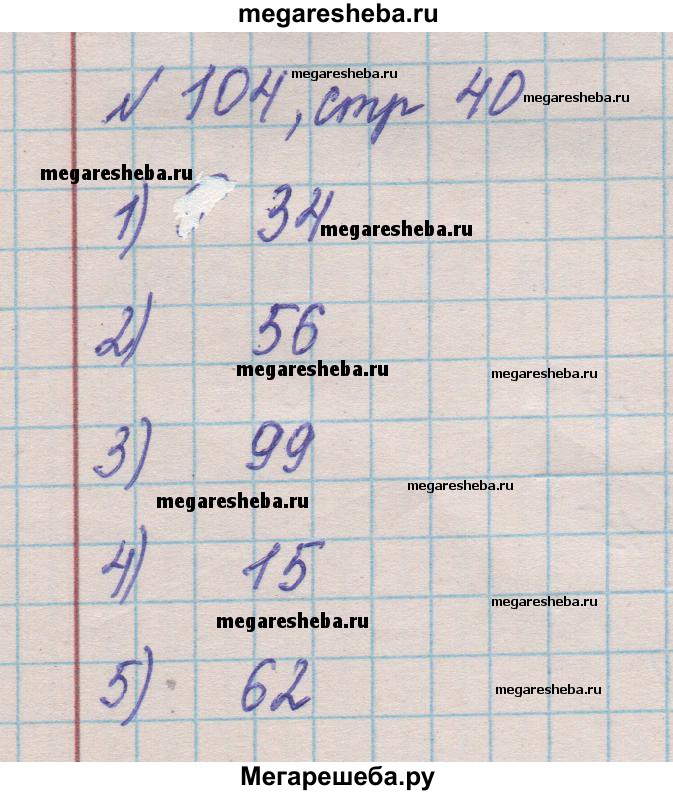 megaresheba.ru
№ 104, стр 40
megaresheba.ru
megaresheba.ru
megaresheba.ru
1) 34
megaresheba.ru
2) 56
megaresheba.ru
megaresheba.ru
3) 99
megaresheba.ru
megaresheba.ru
4) 15
megaresheba.ru
megaresheba.ru
5) 62
megaresheba.ru
Мегарешеба.ру